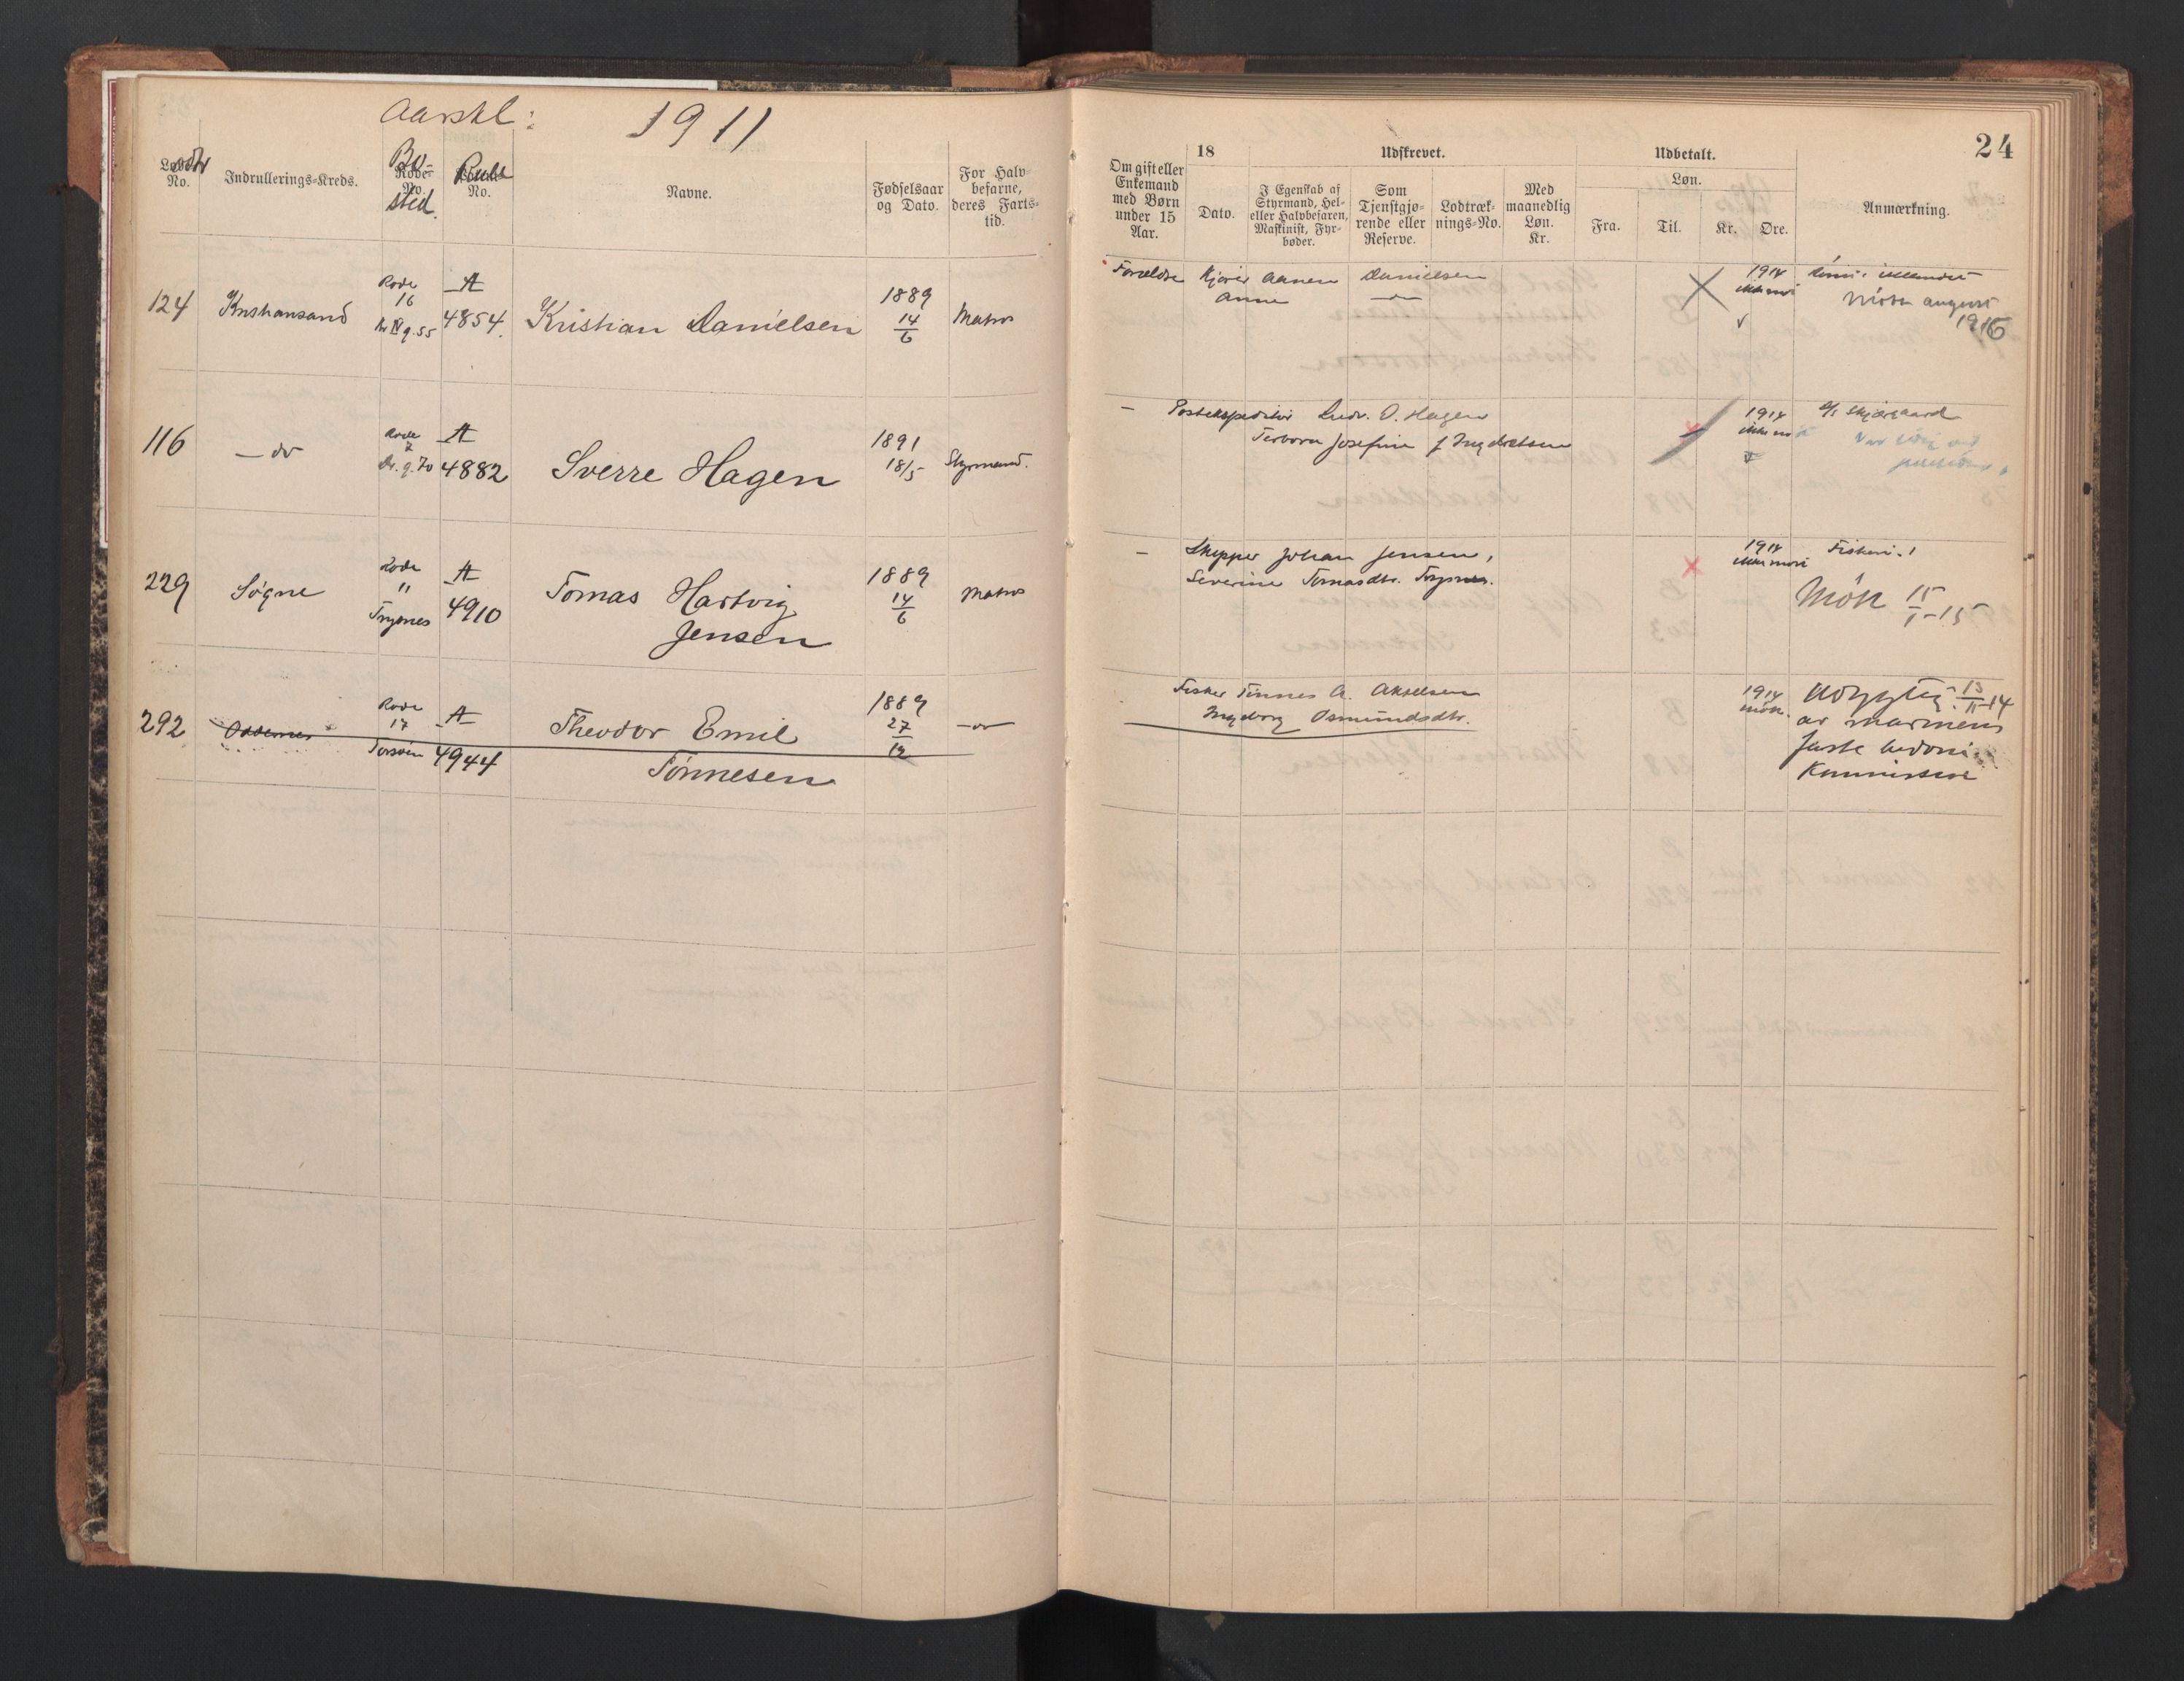 Aarskl: 1911
24
Løbe No.
Indrullerings-Kreds.
Bo-sted.
Rode-No.
Rulle No.
Navne.
Fødselsaar og Dato.
For Halvbefarne, deres Fartstid.
Om gift eller Enkemand med Børn under 15 Aar.
18
Dato.
Udskrevet.
I Egenskab af Styrmand, Hel- eller Halvbefaren, Maskinist, Fyrbøder.
Som Tjenstgjørende eller Reserve.
Lodtræknings-No.
Med maanedlig Løn. Kr.
Udbetalt.
Løn.
Fra.
Til.
Kr.
Øre.
Anmærkning.
124 Kristiansand Rode 16 A 4854. Kristian Danielsen 1889 14/6 Matros
Forældre Kjører Aanen Danielsen
Anna —"—
1914 ikke møt
v
august 1916
116 — do Rode 2 Dr. g. 70 A 4882 Sverre Hagen 1891 18/5 Styrmand.
— Postekspeditør Ludv. O. Hagen
Josefine f. Ingebretsen
1914 ikke møt
229 Søgne Rode 11 Trysnes A 4910 Tomas Hartvig Jensen 1889 14/6 Matros
— Skipper Johan Jensen,
Severine Tomasdtr. Trysnes.
1914 ikke møt
Fiskeri.
Møtt 15/1-15
292 Oddernes Rode 17 A 4944 Theodor Emil Tønnesen 1889 27/12 —do
Fisker Tønnes A. Akselsen
Ingeborg Osmundsdtr.
1914 møtt.
Udygtig 13/11-14
av marinens
faste bedømm.
Kommission